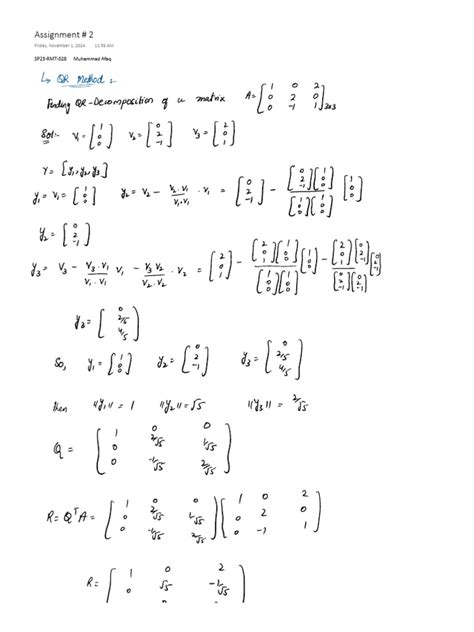 Assignment # 2
Friday, November 1, 2024 11:53 AM
SP23-RMT-028 Muhammad Afaq
↳ QR Method :-
Finding QR-Decomposition of a matrix A = [1 0 2; 0 2 0; 0 -1 1]
Sol:- V₁ = [1; 0; 0] V₂ = [0; 2; -1] V₃ = [2; 0; 1]
Y = [y₁, y₂, y₃]
y₁ = V₁ = [1; 0; 0] y₂ = V₂ - (V₂·V₁)/(V₁·V₁) · V₁ = [0; 2; -1] - ([0; 2; -1][1; 0; 0])/([1; 0; 0][1; 0; 0]) [1; 0; 0]
y₂ = [0; 2; -1]
y₃ = V₃ - (V₃·V₁)/(V₁·V₁) V₁ - (V₃·V₂)/(V₂·V₂) · V₂ = [2; 0; 1] - ([2; 0; 1][1; 0; 0])/([1; 0; 0][1; 0; 0]) [1; 0; 0] - ([2; 0; 1][0; 2; -1])/([0; 2; -1][0; 2; -1]) [0; 2; -1]
y₃ = [0; 2/5; 4/5]
So, y₁ = [1; 0; 0] y₂ = [0; 2; -1] y₃ = [0; 2/5; 4/5]
then ||y₁|| = 1 ||y₂|| = √5 ||y₃|| = 2/√5
Q = [1 0 0; 0 2/√5 1/√5; 0 -1/√5 2/√5]
R = QᵀA = [1 0 0; 0 2/√5 1/√5; 0 -1/√5 2/√5] [1 0 2; 0 2 0; 0 -1 1]
R = [1 0 2; 0 √5 -1/√5